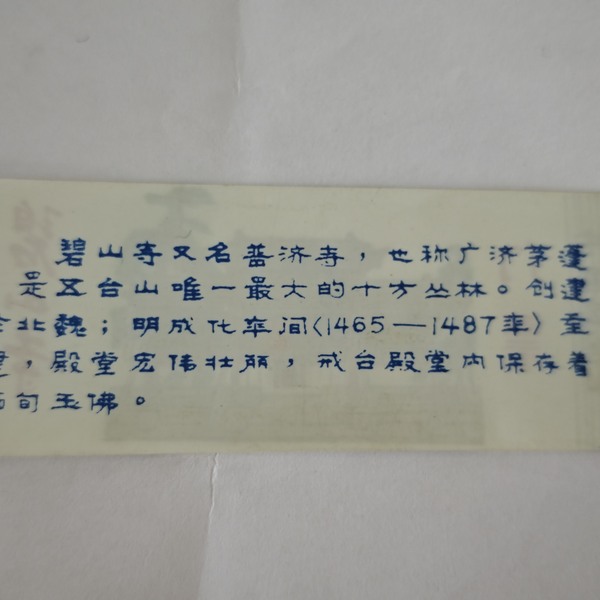 碧山寺又名普济寺，也称广济茅蓬
是五台山唯一最大的十方丛林。创建
于北魏；明成化年间(1465—1487年)重
建，殿堂宏伟壮丽，戒台殿堂内保存着
缅甸玉佛。